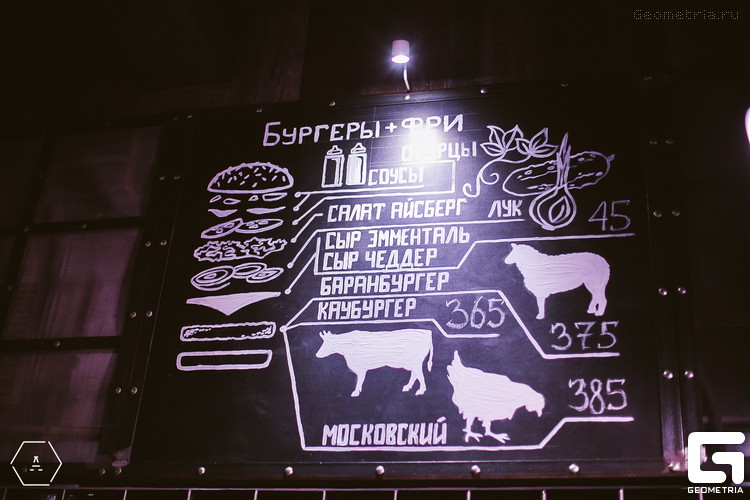 Geometria.ru
БУРГЕРЫ + ФРИ
ОГУРЦЫ
СОУСЫ
САЛАТ АЙСБЕРГ ЛУК 45
СЫР ЭММЕНТАЛЬ
СЫР ЧЕДДЕР
БАРАНБУРГЕР
КАУБУРГЕР 365
375
385
МОСКОВСКИЙ
GEOMETRIA